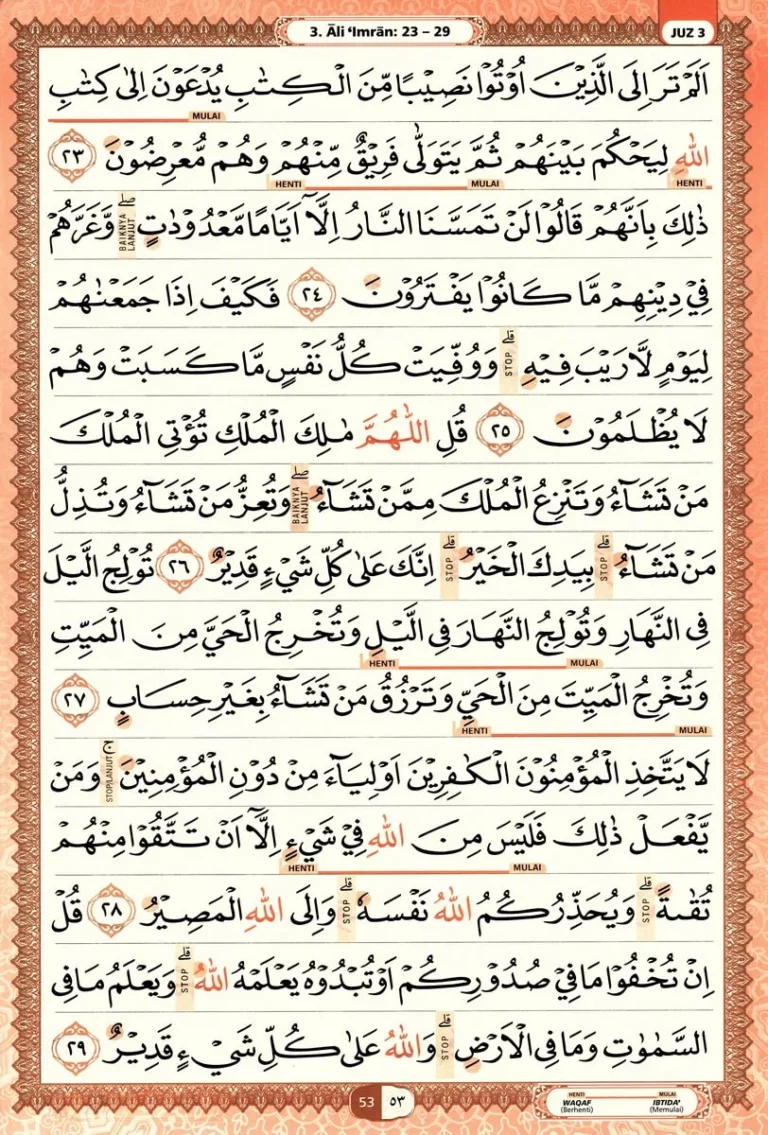 3. Āli ‘Imrān: 23 – 29
JUZ 3
اَلَمْ تَرَ اِلَى الَّذِيْنَ اُوْتُوْا نَصِيْبًا مِّنَ الْكِتٰبِ يُدْعَوْنَ اِلٰى كِتٰبِ
MULAI
اللّٰهِ لِيَحْكُمَ بَيْنَهُمْ ثُمَّ يَتَوَلّٰى فَرِيْقٌ مِّنْهُمْ وَهُمْ مُّعْرِضُوْنَ ٢٣
HENTI MULAI HENTI
ذٰلِكَ بِاَنَّهُمْ قَالُوْا لَنْ تَمَسَّنَا النَّارُ اِلَّآ اَيَّامًا مَّعْدُوْدٰتٍ ۖ BAIKNYA LANJUT وَّغَرَّهُمْ
فِيْ دِيْنِهِمْ مَّا كَانُوْا يَفْتَرُوْنَ ٢٤ فَكَيْفَ اِذَا جَمَعْنٰهُمْ
لِيَوْمٍ لَّا رَيْبَ فِيْهِ ۗ STOP وَوُفِّيَتْ كُلُّ نَفْسٍ مَّا كَسَبَتْ وَهُمْ
لَا يُظْلَمُوْنَ ٢٥ قُلِ اللّٰهُمَّ مٰلِكَ الْمُلْكِ تُؤْتِى الْمُلْكَ
مَنْ تَشَاۤءُ وَتَنْزِعُ الْمُلْكَ مِمَّنْ تَشَاۤءُ ۖ BAIKNYA LANJUT وَتُعِزُّ مَنْ تَشَاۤءُ وَتُذِلُّ
مَنْ تَشَاۤءُ ۗ STOP بِيَدِكَ الْخَيْرُ ۗ STOP اِنَّكَ عَلٰى كُلِّ شَيْءٍ قَدِيْرٌ ٢٦ تُوْلِجُ الَّيْلَ
فِى النَّهَارِ وَتُوْلِجُ النَّهَارَ فِى الَّيْلِ وَتُخْرِجُ الْحَيَّ مِنَ الْمَيِّتِ
MULAI HENTI
وَتُخْرِجُ الْمَيِّتَ مِنَ الْحَيِّ وَتَرْزُقُ مَنْ تَشَاۤءُ بِغَيْرِ حِسَابٍ ٢٧
MULAI HENTI
لَا يَتَّخِذِ الْمُؤْمِنُوْنَ الْكٰفِرِيْنَ اَوْلِيَاۤءَ مِنْ دُوْنِ الْمُؤْمِنِيْنَ ۚ STOP/LANJUT وَمَنْ
يَّفْعَلْ ذٰلِكَ فَلَيْسَ مِنَ اللّٰهِ فِيْ شَيْءٍ اِلَّآ اَنْ تَتَّقُوْا مِنْهُمْ
MULAI HENTI
تُقٰىةً ۗ STOP وَيُحَذِّرُكُمُ اللّٰهُ نَفْسَهٗ ۗ STOP وَاِلَى اللّٰهِ الْمَصِيْرُ ٢٨ قُلْ
اِنْ تُخْفُوْا مَا فِيْ صُدُوْرِكُمْ اَوْ تُبْدُوْهُ يَعْلَمْهُ اللّٰهُ ۗ STOP وَيَعْلَمُ مَا فِى
السَّمٰوٰتِ وَمَا فِى الْاَرْضِ ۗ STOP وَاللّٰهُ عَلٰى كُلِّ شَيْءٍ قَدِيْرٌ ٢٩
53 ٥٣
HENTI MULAI
WAQAF IBTIDA’
(Berhenti) (Memulai)